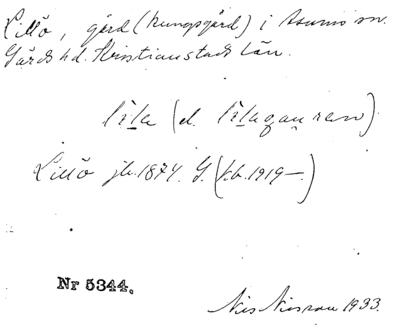 Lillö, gård (kungsgård) i Åsums sn.
Gärds hd. Kristianstads län.
lila (el.
Lillö jb. 1874. G. (kb. 1919–.)
Nr 5344.
Nils Nilsson 1933.